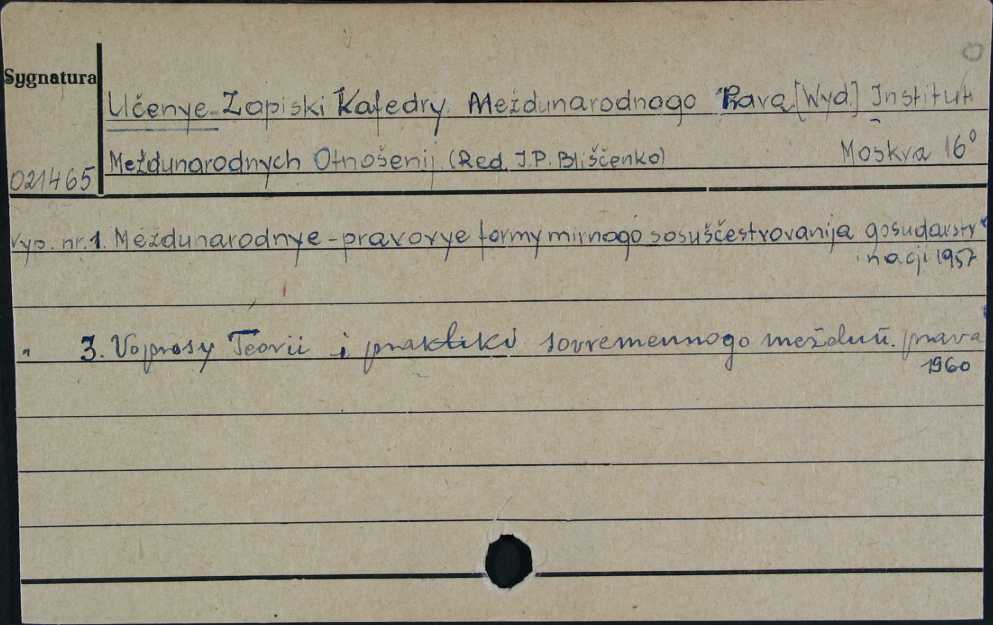 Sygnatura
Učenye Zapiski Kafedry Meždunarodnogo Prava [Wyd.] Institut
Meždunarodnych Otnošenij. (Red. I.P. Bliščenko) Moskva 16°
021465
Vyp. nr. 1. Meždunarodnye-pravovye formy mirnogo sosuščestvovanija gosudarstv
i nacji 1957
" 3. Voprosy Teorii i praktiki sovremennogo meždun. prava
1960